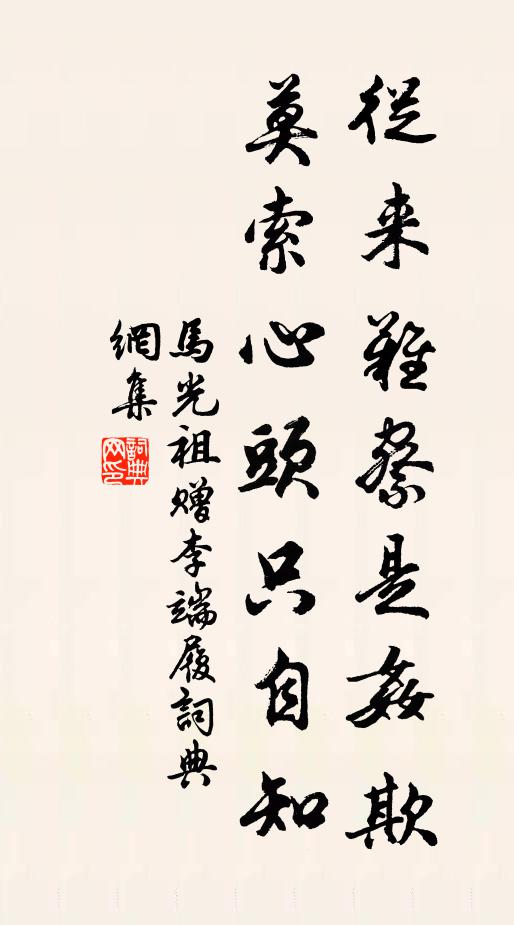 從来難察是姦欺
莫索心頭只自知
馬光祖贈李端履詞典
網集
詞典網印